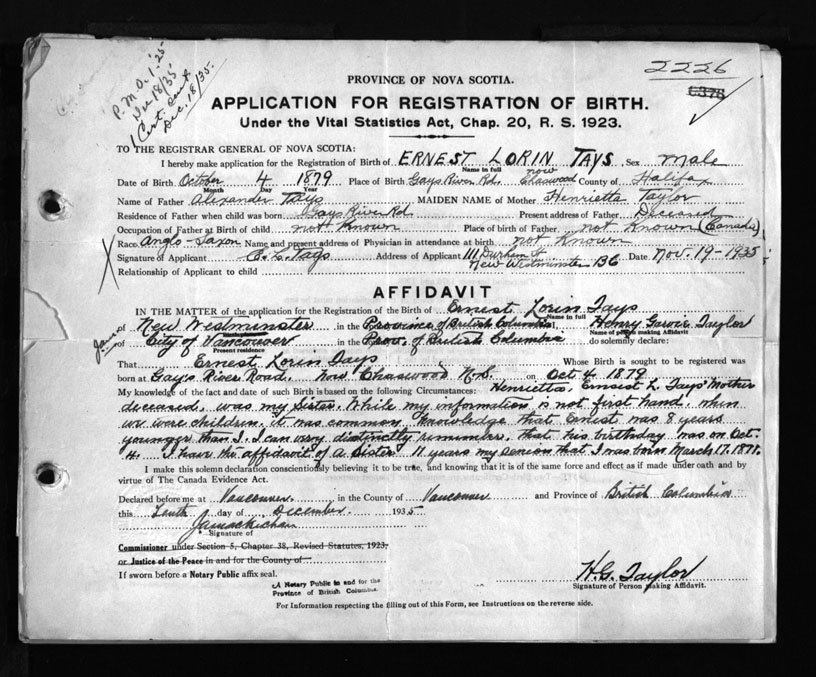 P.M.O. 1.25
Dec 18/35
Cert. sent
Dec. 18/35.
2226
PROVINCE OF NOVA SCOTIA.
APPLICATION FOR REGISTRATION OF BIRTH.
Under the Vital Statistics Act, Chap. 20, R. S. 1923.
TO THE REGISTRAR GENERAL OF NOVA SCOTIA:
I hereby make application for the Registration of Birth of ERNEST LORIN TAYS Sex Male
Name in full
Date of Birth October 4 1879 Place of Birth Gays River Rd. now Chaswood County of Halifax
Month Day Year
Name of Father Alexander Tays MAIDEN NAME of Mother Henrietta Taylor
Residence of Father when child was born Gays River Rd. Present address of Father Deceased
Occupation of Father at Birth of child not Known Place of birth of Father not Known (Canada)
Race Anglo-Saxon Name and present address of Physician in attendance at birth not Known
Signature of Applicant E. L. Tays Address of Applicant 111 Durham St New Westminster BC Date Nov. 19-1935
Relationship of Applicant to child
AFFIDAVIT
IN THE MATTER of the application for the Registration of the Birth of Ernest Lorin Tays
Name in full
of New Westminster in the Province of British Columbia, I, Henry Garvie Taylor
Name of person making Affidavit
of City of Vancouver in the Prov. of British Columbia do solemnly declare:
Present residence
That Ernest Lorin Tays Whose Birth is sought to be registered was
born at Gays River Road, now Chaswood N.S. on Oct 4 1879
My knowledge of the fact and date of such Birth is based on the following Circumstances: Henrietta, Ernest L. Tays' Mother
deceased, was my Sister. While my information is not first hand, when
we were children, it was common knowledge that Ernest was 8 years
younger than I. I can very distinctly remember, that his birthday was on Oct.
4. I have the affidavit of a Sister 11 years my senior that I was born March 17. 1871.
I make this solemn declaration conscientiously believing it to be true, and knowing that it is of the same force and effect as if made under oath and by
virtue of The Canada Evidence Act.
Declared before me at Vancouver. in the County of Vancouver and Province of British Columbia
this Tenth day of December. 1935
Signature of
Commissioner under Section 5, Chapter 38, Revised Statutes, 1923,
or Justice of the Peace in and for the County of
If sworn before a Notary Public affix seal.
A Notary Public in and for the
Province of British Columbia
H.G. Taylor
Signature of Person making Affidavit.
For Information respecting the filling out of this Form, see Instructions on the reverse side.